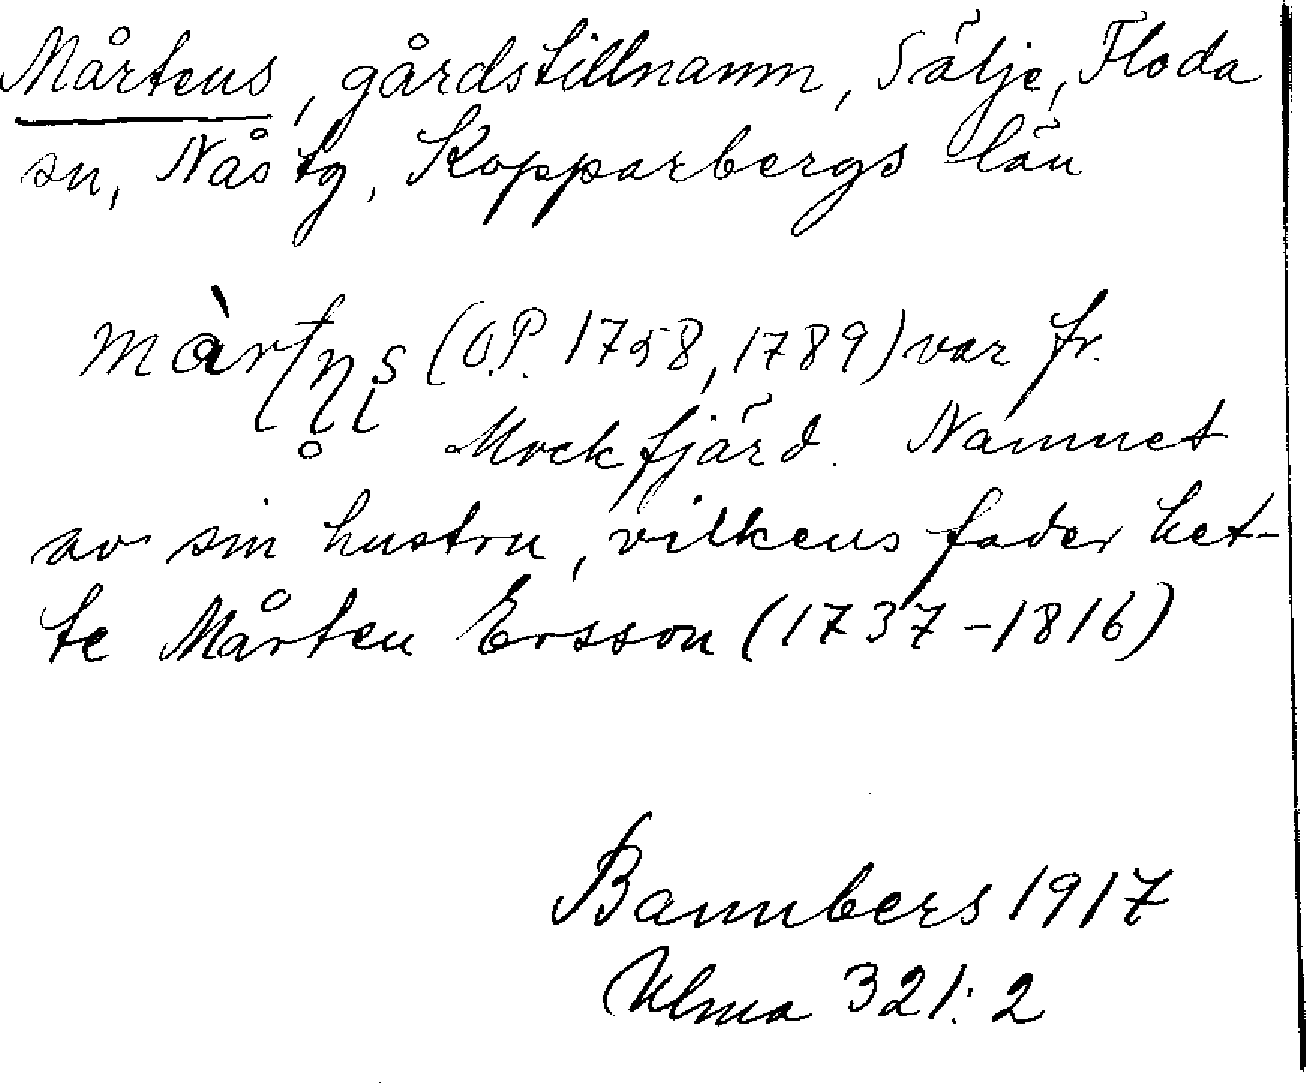 Mårtens, gårdstillnamn, Sälje, Floda
sn, Nås tg, Kopparbergs län
(O.P. 1758, 1789) var fr.
Mockfjärd. Namnet
av sin hustru, vilkens fader het-
te Mårten Ersson (1737-1816)
Bannbers 1917
Ulma 321:2